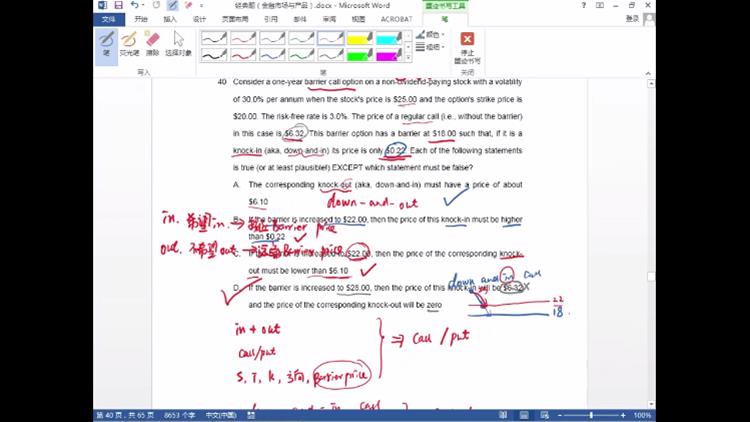 经典题（金融市场与产品）.docx - Microsoft Word
墨迹书写工具
文件 开始 插入 设计 页面布局 引用 邮件 审阅 视图 ACROBAT 笔 登录
笔 荧光笔 橡皮擦 选择对象
颜色
粗细
停止墨迹书写
写入 笔 关闭
40 Consider a one-year barrier call option on a non-dividend-paying stock with a volatility
of 30.0% per annum when the stock's price is $25.00 and the option's strike price is
$20.00. The risk-free rate is 3.0%. The price of a regular call (i.e., without the barrier)
in this case is $6.32. This barrier option has a barrier at $18.00 such that, if it is a
knock-in (aka, down and in) its price is only $0.22. Each of the following statements
is true (or at least plausible!) EXCEPT which statement must be false?
A. The corresponding knock-out (aka, down-and-in) must have a price of about
$6.10
down-and-out
in. 希望in. → Barrier price
B. If the barrier is increased to $22.00, then the price of this knock-in must be higher
than $0.22
out. 不希望out → 远离Barrier price
C. If the barrier is increased to $22.00, then the price of the corresponding knock-
out must be lower than $6.10
down and in call
D. If the barrier is increased to $28.00, then the price of this knock-in will be $6.32
and the price of the corresponding knock-out will be zero
22
18
in + out
call/put
S, T, K, 方向, Barrier price
⇒ call / put
第 40 页，共 65 页 8653 个字 中文(中国) 100%